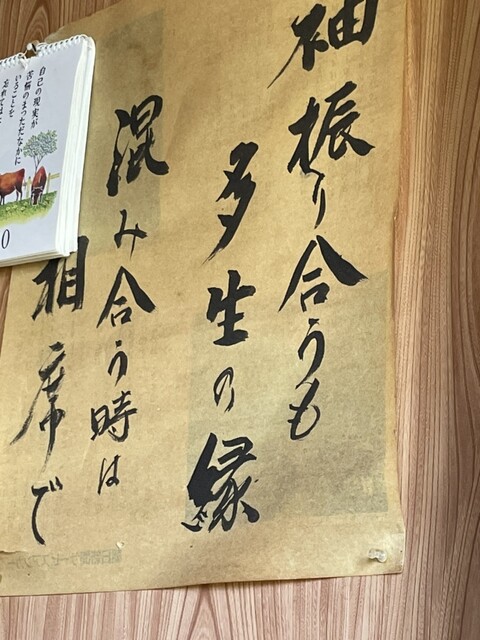 袖振り合うも
多生の縁
混み合う時は
相席で
自己の現実が
苦悩のまっただなかに
いることを
0